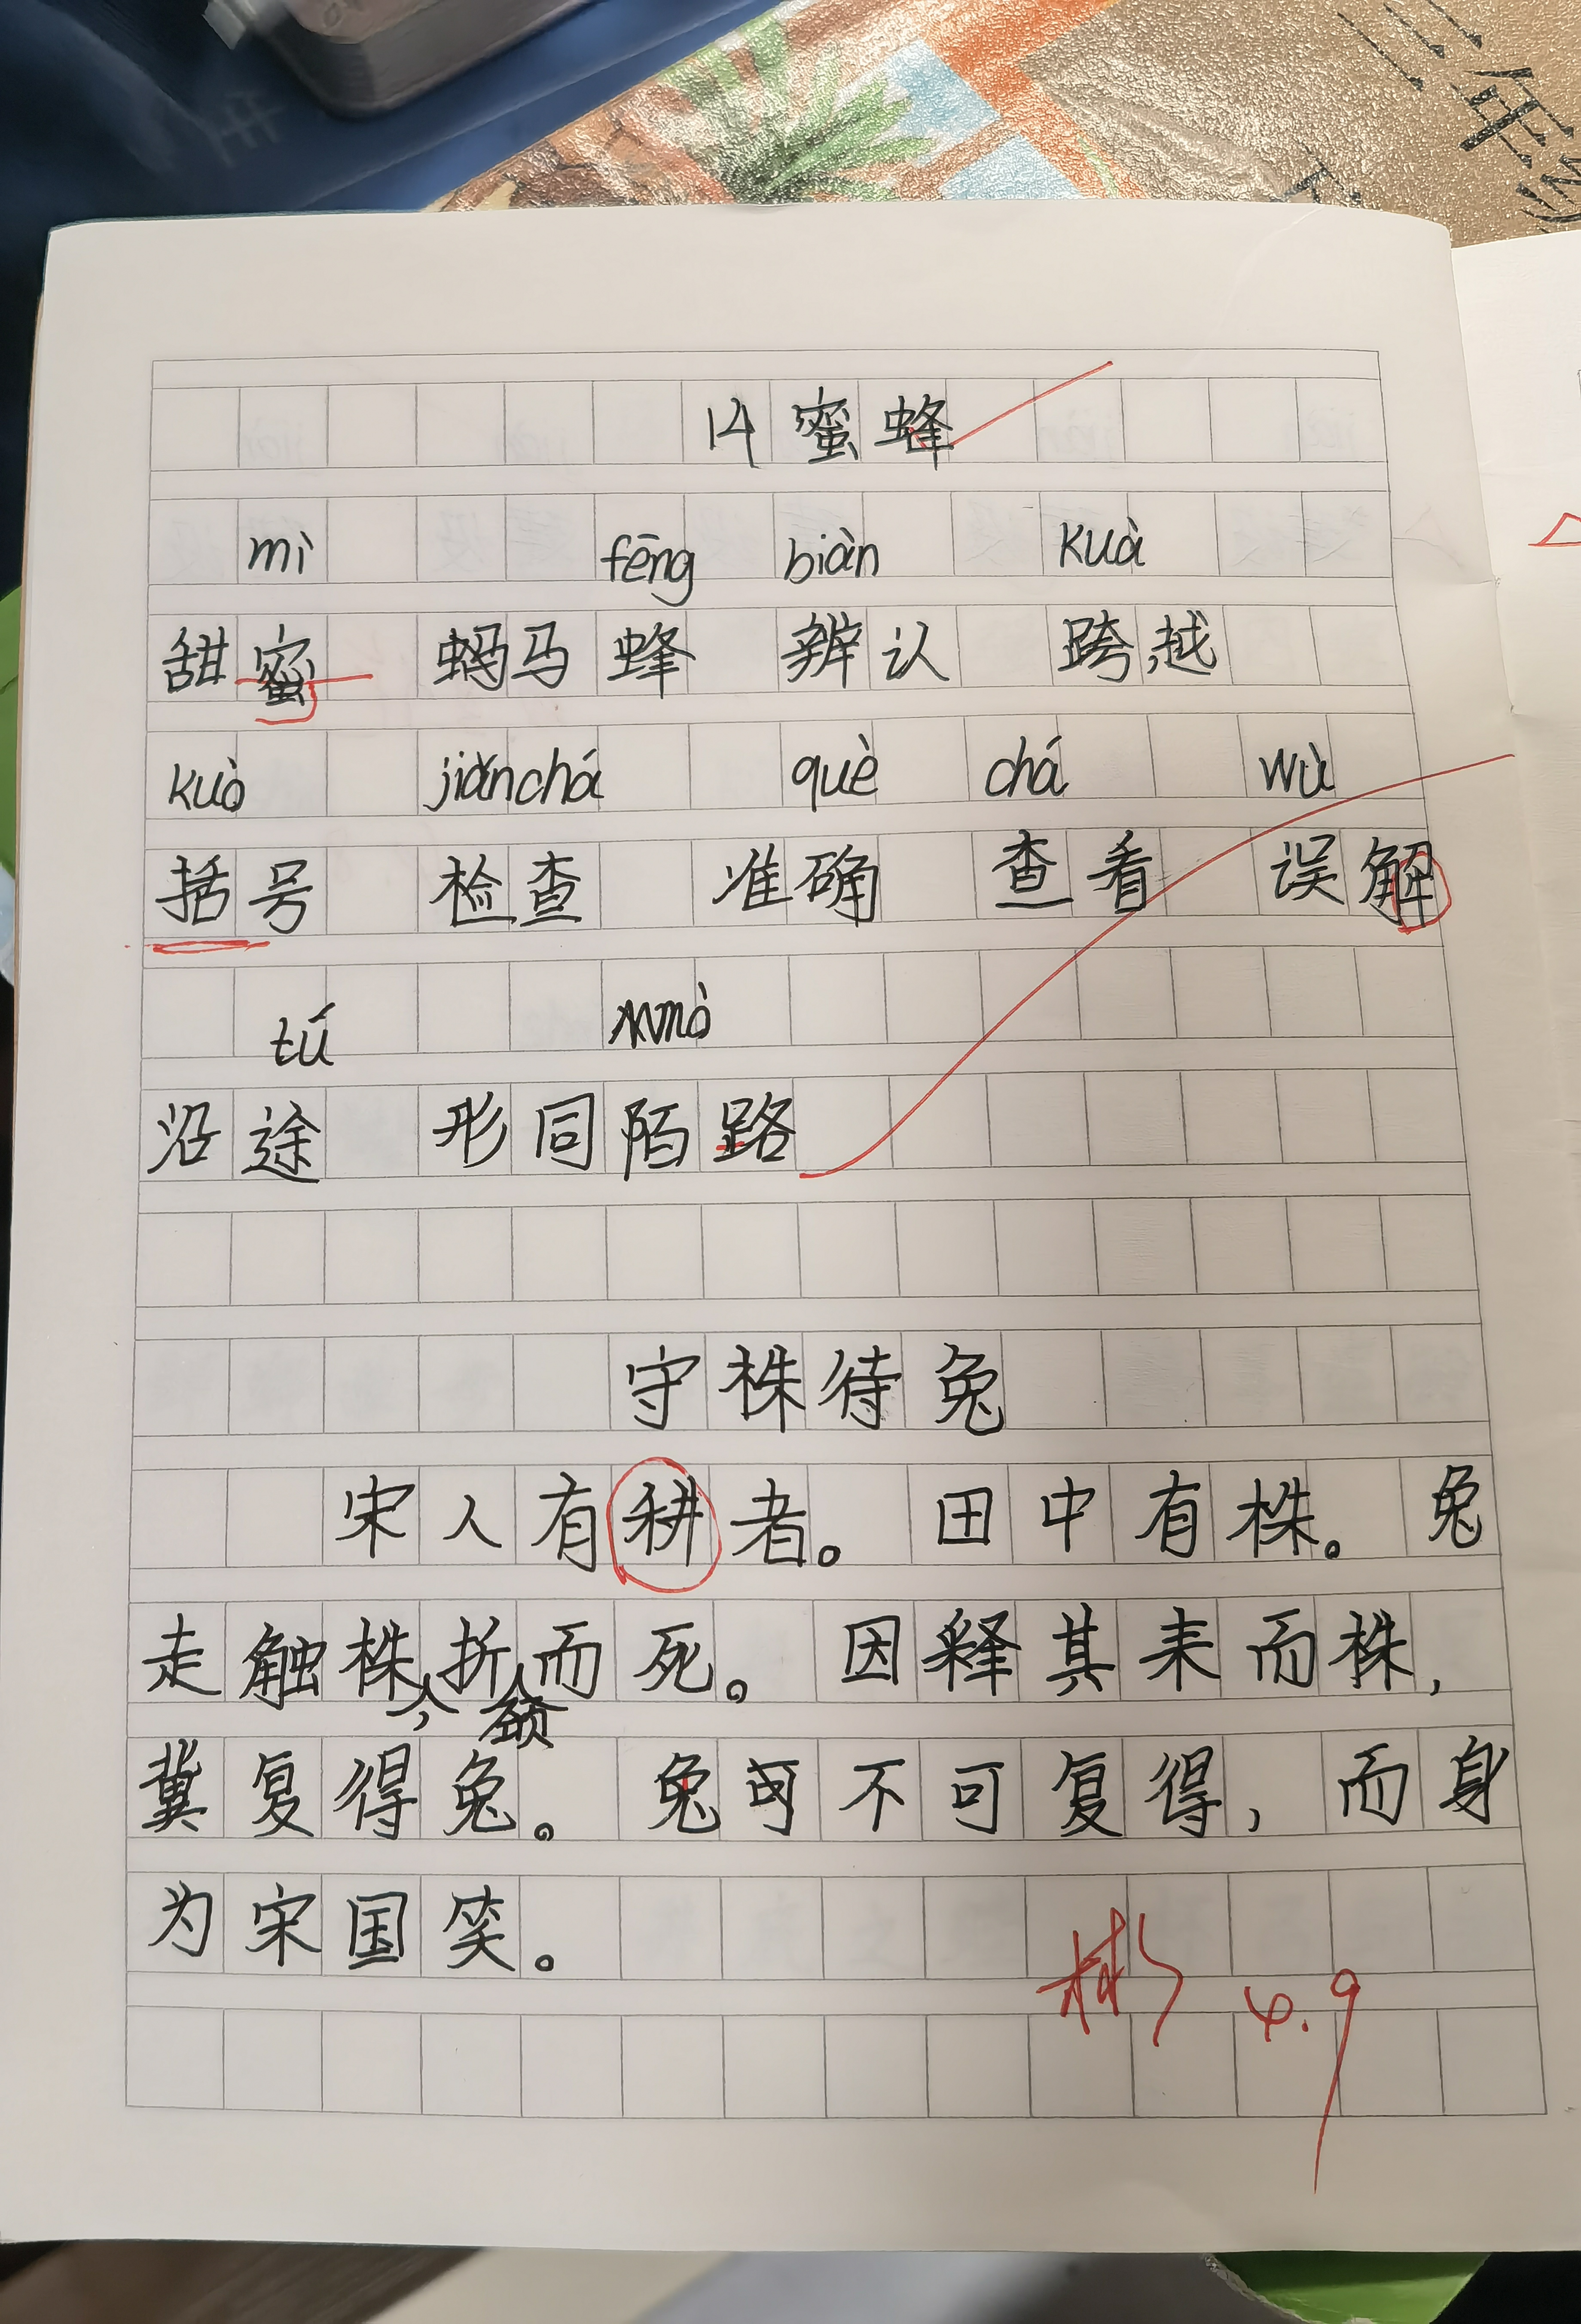 三年级
14 蜜蜂
mì fēng biàn kuà
甜蜜 蚂蜂 辨认 跨越
kuò jiǎnchá què chá wù
括号 检查 准确 查看 误解
tú mò
沿途 形同陌路
守株待兔
宋人有耕者。田中有株。兔
走触株折而死。因释其耒而株,
,颈
冀复得兔。兔可不可复得,而身
为宋国笑。
彬 4.9